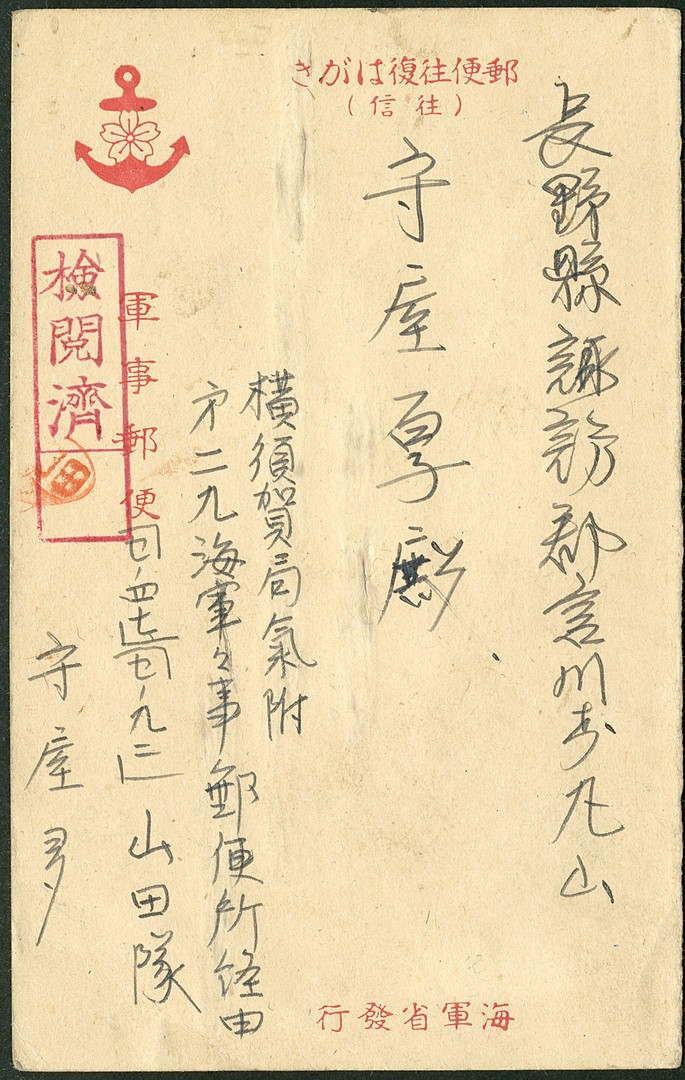 郵便往復はがき
(往信)
長野縣諏訪郡宮川村丸山
守屋 殿
横須賀局氣附
㐧二九海軍々事郵便所経由
山田隊
守屋
軍事郵便
検閲濟
海軍省發行